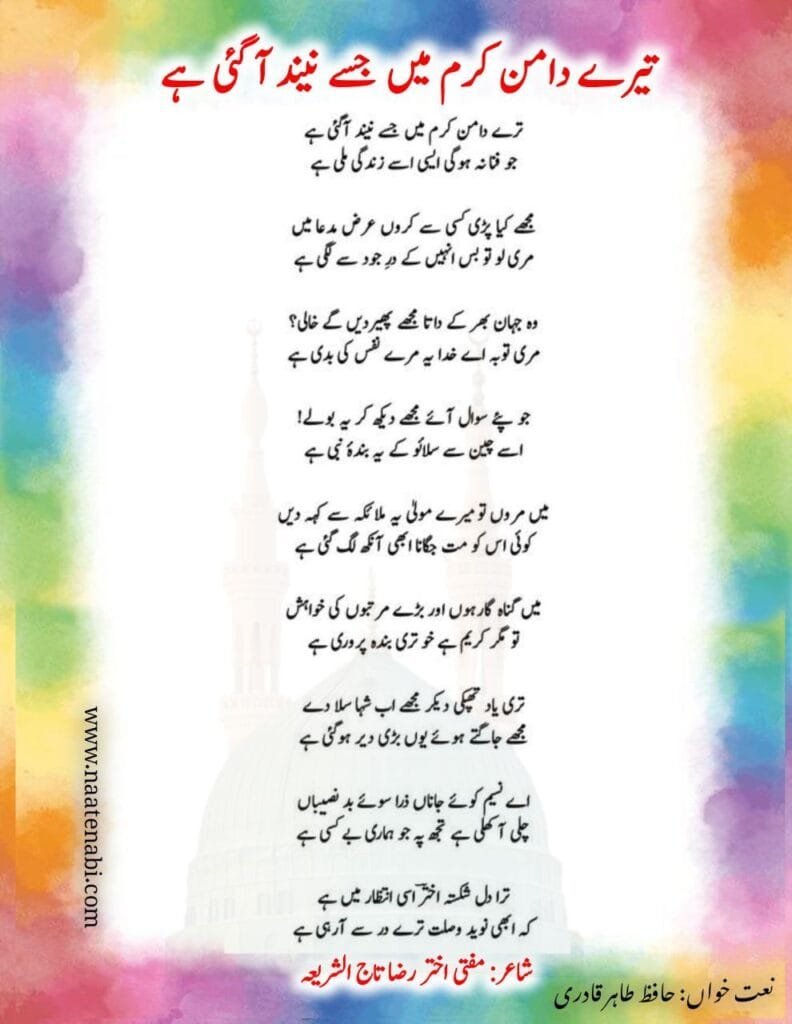 تیرے دامن کرم میں جسے نیند آگئی ہے
ترے دامن کرم میں جسے نیند آگئی ہے
جو فنا نہ ہوگی ایسی اسے زندگی ملی ہے
مجھے کیا پڑی کسی سے کروں عرض مدعا میں
مری لو تو بس انہیں کے درِ جود سے لگی ہے
وہ جہان بھر کے داتا مجھے پھیر دیں گے خالی؟
مری توبہ اے خدا یہ مرے نفس کی بدی ہے
جو پئے سوال آئے مجھے دیکھ کر یہ بولے!
اسے چین سے سلائو کے یہ بندۂ نبی ہے
میں مروں تو میرے مولیٰ یہ ملائکہ سے کہہ دیں
کوئی اس کو مت جگانا ابھی آنکھ لگ گئی ہے
میں گناہ گار ہوں اور بڑے مرتبوں کی خواہش
تو مگر کریم ہے خو تری بندہ پروری ہے
تری یاد تھپکی دیکر مجھے اب شہا سلا دے
مجھے جاگتے ہوئے یوں بڑی دیر ہوگئی ہے
اے نسیم کوئے جاناں ذرا سوئے بد نصیباں
چلی آ کھلی ہے تجھ پہ جو ہماری بے کسی ہے
ترا دل شکستہ اخترؔ اسی انتظار میں ہے
کہ ابھی نوید وصلت ترے در سے آرہی ہے
شاعر: مفتی اختر رضا تاج الشریعہ
نعت خواں: حافظ طاہر قادری
www.naatenabi.com